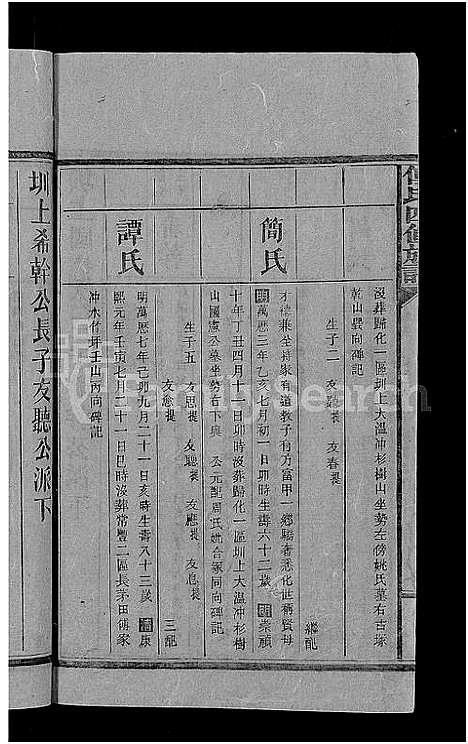 傅氏四修族譜
沒葬歸化一區圳上大溫冲杉樹山坐勢左傍姚氏墓右古塚
乾山巽向碑記
生子二 友聽 友春
繼配
簡氏
才德兼坐持家有道教子有方富甲一鄉驕奢悉化世稱賢母
明萬曆三年乙亥七月初一日卯時生壽六十二歲 明崇禎
十年丁丑四月十一日卯時沒葬歸化一區圳上大溫冲杉樹
山國憲公墓坐勢右下與 公元配周氏妣合冢同向碑記
生子五 友思 友聰 友應 友息
友愈
三配
譚氏
明萬曆七年己卯九月二十一日亥時生壽八十三歲 清康
熙元年壬寅七月二十一日巳時沒葬常豐二區長茅田傅家
冲水竹坪壬山丙向碑記
圳上希幹公長子友聽公派下